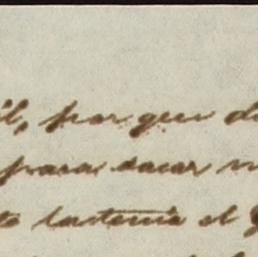 il, por que d
para sacar m
to lastenia el G